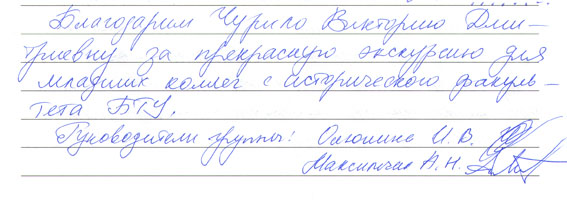 Благодарим Чурило Викторию Дми-
триевну за прекрасную экскурсию для
младших коллег с исторического факуль-
тета БГУ.
Руководители группы: И. В.
А. Н.